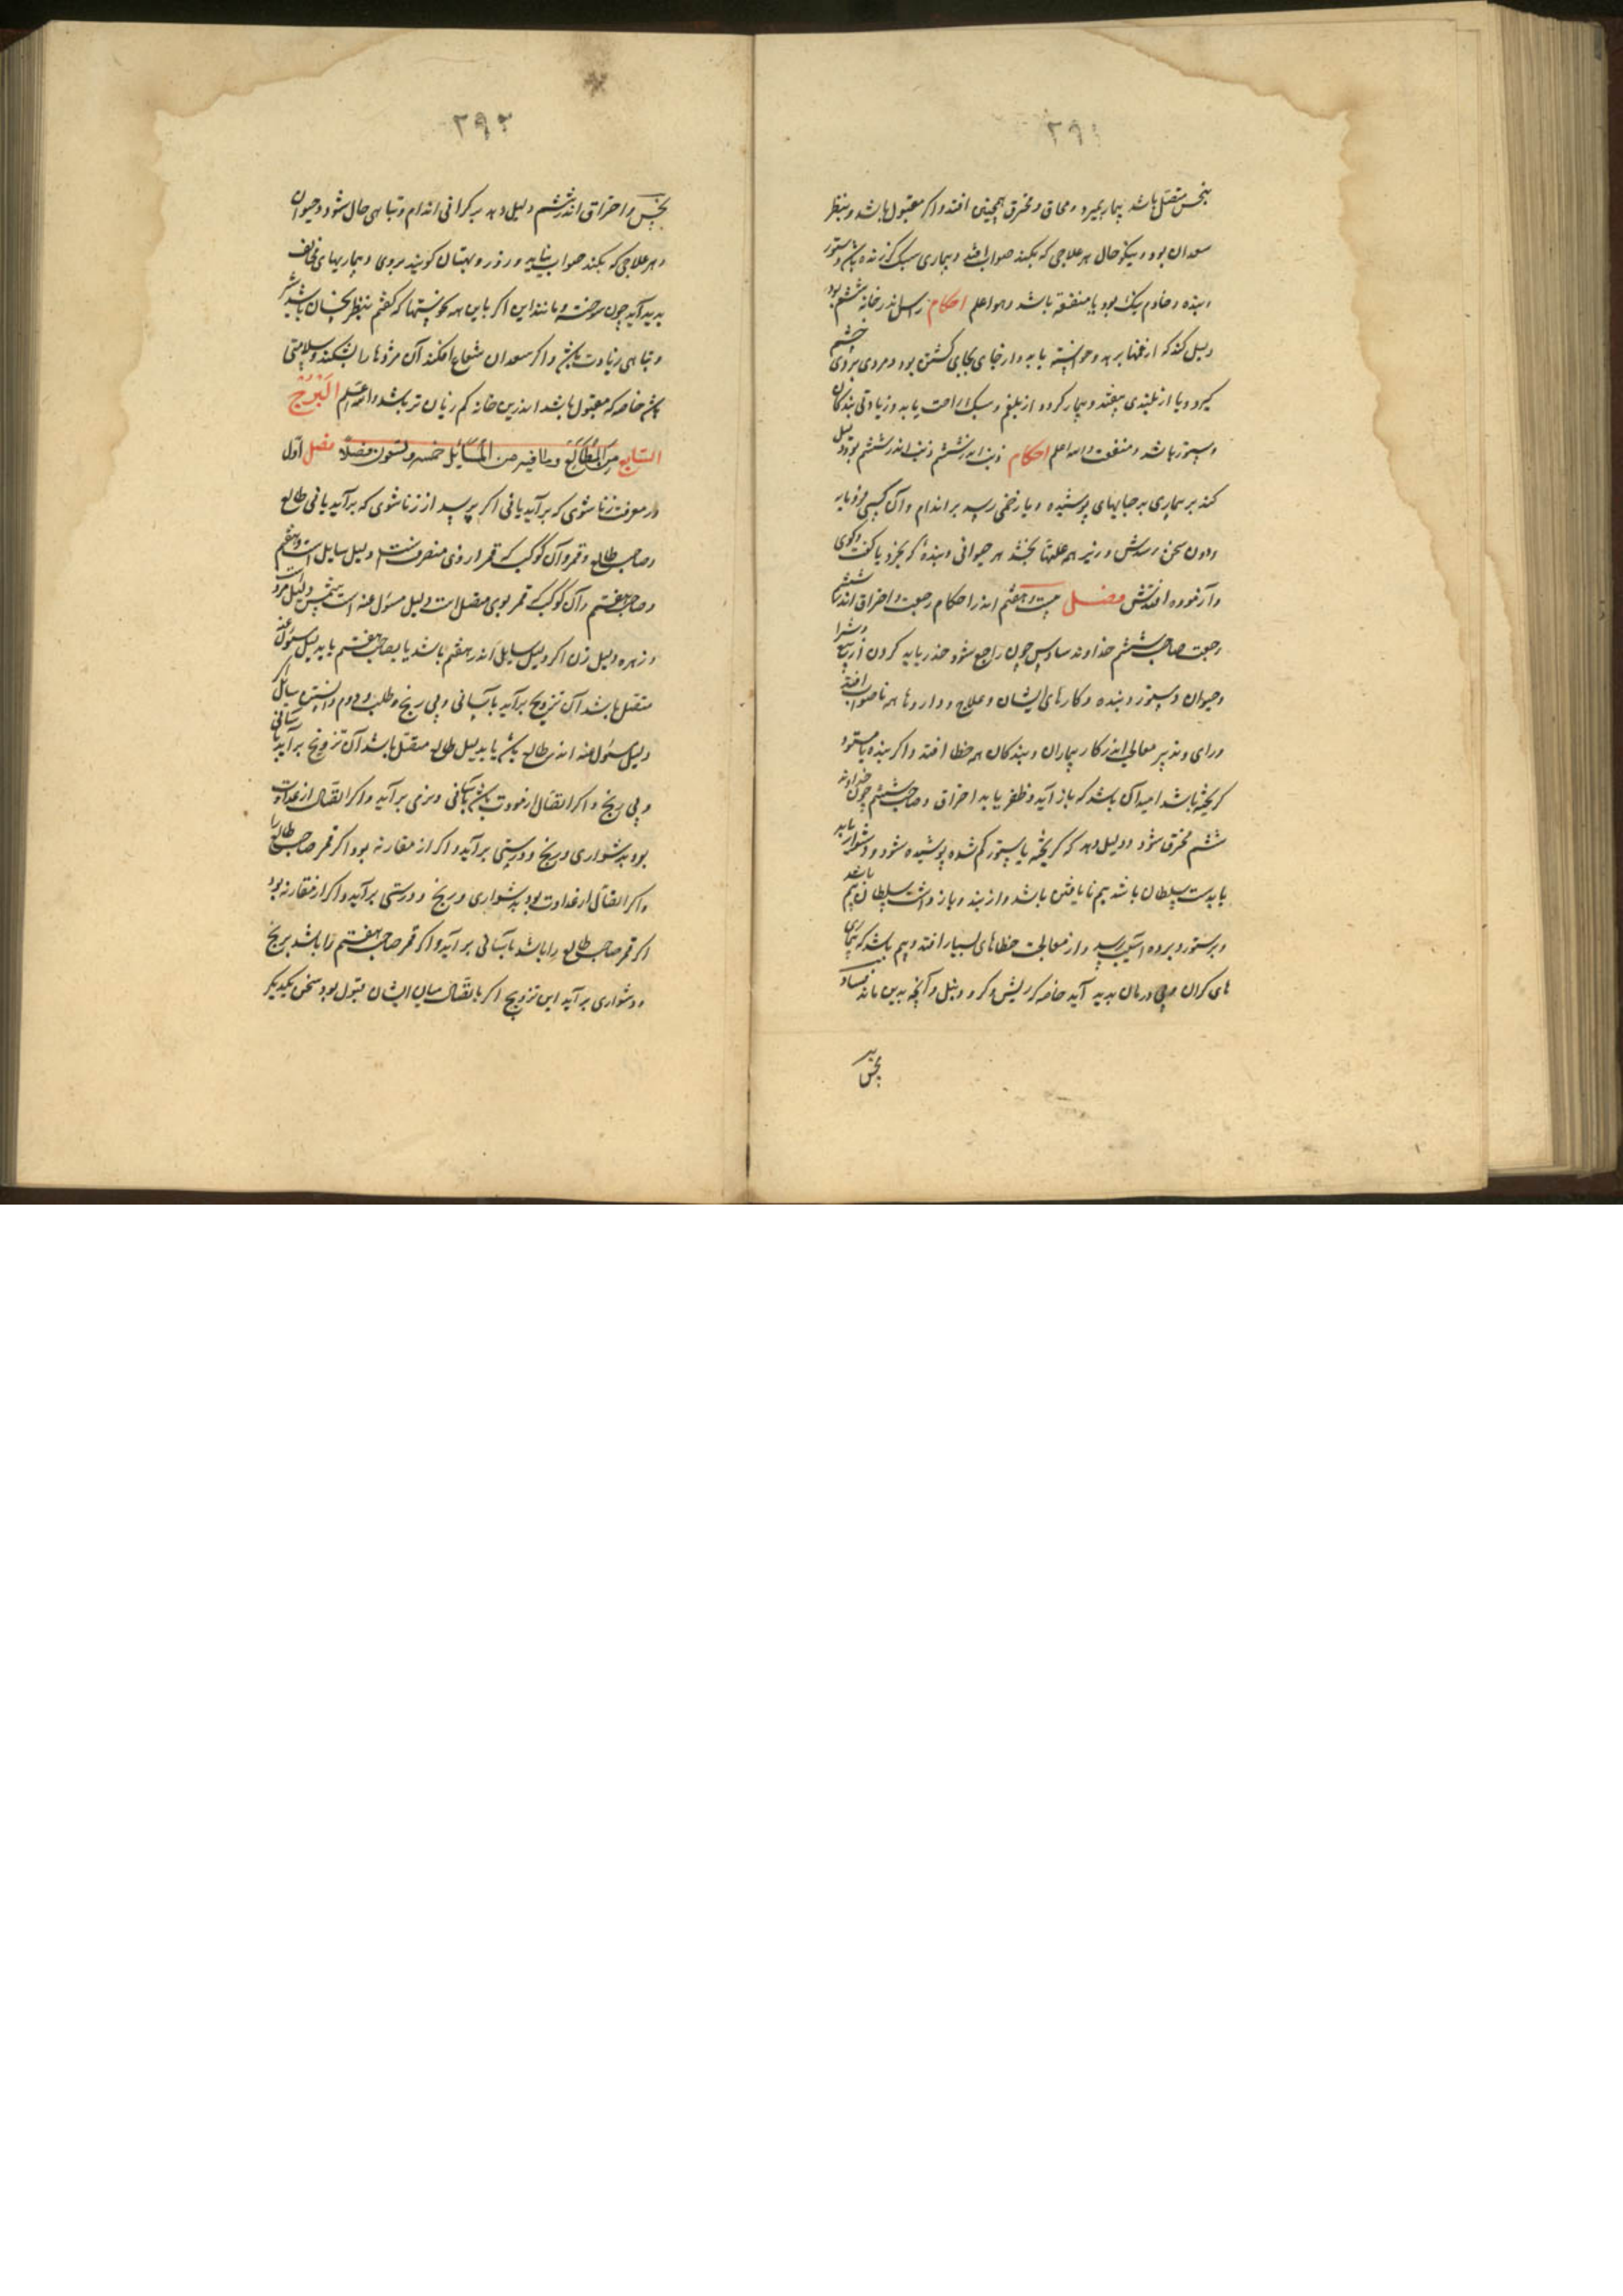 ۲۹۱
بنحس متصل باشد بیمار بمیرد و محاق و محترق همچنین افتد و اکر مقبول باشد و بنظر
سعدان بود و نیکو حال هر علاجی که بکنند صواب افتد و بیماری سبک کزنده باشد و ستور
و بنده و خادم نیک بود با منفعة باشد و هو اعلم احکام راس اندر خانه ششم بود
دلیل کند که از غمها برهد و خواسته یابد و از جای بجای کشتن بود و مردی بروی خشم
کیرد و یا از بلندی بیفتد و بیمار کردد از بلغم و سبک راحت یابد و زیادتی بندکان
و ستور باشد و منفعت والله اعلم احکام ذنب اندر ششم ذنب اندر ششم بود دلیل
کند بر بیماری بر جایهای پوشیده و یا زخمی رسد بر اندام و آن کسی فرومایه
ودون سخن رسدش و نیز همه علتها بخشد هر حیوانی و بنده که بخرد یا کفت و کوی
و آزموده افتدش فصل بیست و هفتم اندر احکام رجعت و احتراق اندر ششم
رجعت صاحب ششم خداوند سادس چون راجع شود حذر باید کردن از بیع و شرا
و حیوان و ستور و بنده و کارهای ایشان و علاج و داروها همه ناصواب افتد
و رای و تدبیر معالج اندر کار بیماران و بندکان همه خطا افتد و اکر بنده یا ستور
کریخته باشد امید آن باشد که باز آید و ظفر یابد احتراق و صاحب ششم چون خداوند
ششم محترق شود دلیل دهد که کریخته یا ستور کم شده پوشیده شود و دشوار یابد
یا بدست سلطان باشد بیم نایافتن باشد و از بند و باز داشت سلطان بیم باشد
و بر ستور و برده آسیب رسد و از معالجت خطاهای بسیار افتد و بیم باشد که بیماری
های کران و بی درمان پدید آید خاصه کر ریش و کر و دنبل و آنچه بدین ماند فساد
بد
بخس
۲۹۲
بخس و احتراق اندر ششم دلیل دهد بر کرانی اندام و تباهی حال شود و حیوان
و هر علاجی که بکنند صواب نیاید و زرد و بهتان کویند بروی و بیماریهای مخالف
پدید آید چون سوخته و مانند این اکر با این همه نحوستها که کفتم بنظر نحسان باشد شر
و تباهی زیادت باشد و اکر سعدان شعاع افکند آن مزدها را بشکند و سلامتی
باشد خاصه که مقبول باشد اندرین خانه کم زیان تر باشد والله اعلم البرج
السابع من المطالع وما فیه من المسائل خمسه وتسعون فصلاً فصل اول
در معرفت زناشوی که برآید یا نی اکر پرسد از زناشوی که برآید یا نی طالع
و صاحب طالع و قمر و آن کوکب که قمر از وی منصرفست دلیل سایل است و هفتم
و صاحب هفتم و آن کوکب که قمر بوی متصل است دلیل مسئول عنه است شمس دلیل مرد است
و زهره دلیل زن اکر دلیل سایل اندر هفتم باشد یا بصاحب هفتم یا بدلیل مسئول عنه
متصل باشد آن تزویج برآید بآسانی و بی رنج و طلب و دوم دانستن سایل اکر
دلیل مسئول عنه اندر طالع باشد یا بدلیل طالع متصل باشد آن تزویج برآید بآسانی
و بی رنج و اکر اتصال از مودت باشد بآسانی و نرمی برآید و اکر اتصال از عداوت
بود بدشواری و رنج و درستی برآید و اکر از مقارنه بود اکر قمر صاحب طالع را
و اکر اتصال از عداوت بود بدشواری و رنج و درستی برآید و اکر از مقارنه بود
اکر قمر صاحب طالع را باشد بآسانی برآید و اکر قمر صاحب هفتم را باشد برنج
و دشواری برآید این تزویج اکر با اتصال میان ایشان قبول بود سخن یکدیکر